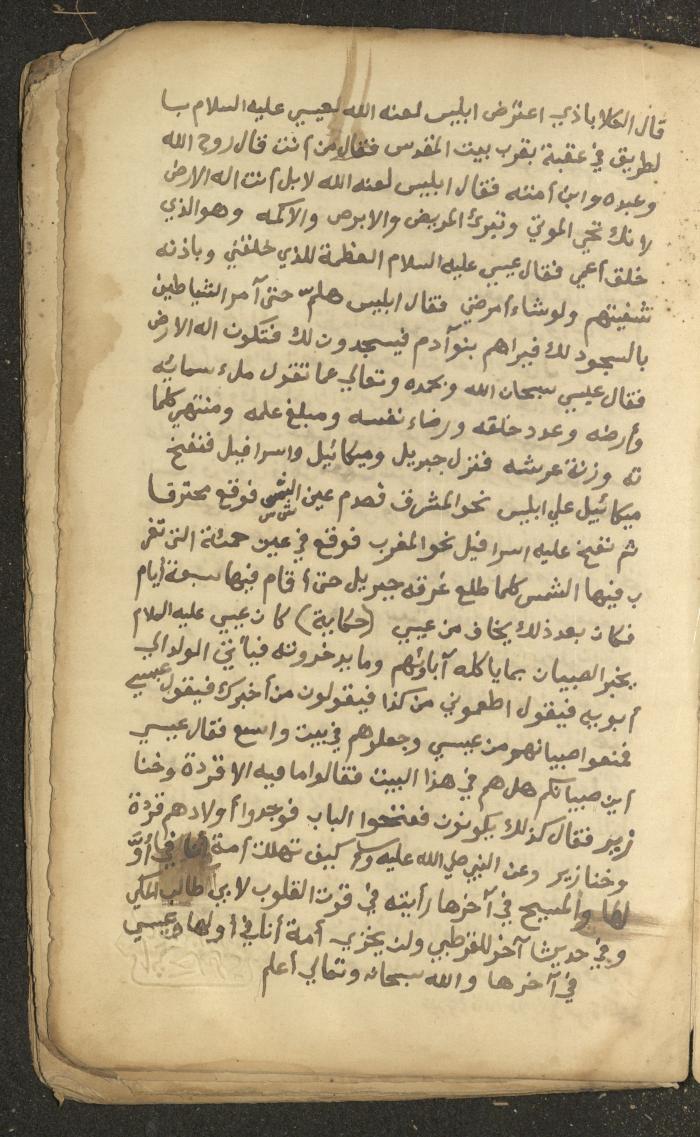 قال الكلاباذي اعترض ابليس لعنه الله لعيسي عليه السلام با
لطريق في عقبة بقرب بيت المقدس فقال من أنت قال روح الله
وعبده وابن أمته فقال ابليس لعنه الله لا بل أنت اله الارض
لانك تحي الموتي وتبرئ المريض والابرص والاكمه وهو الذي
خلق أعمي فقال عيسي عليه السلام العظمة للذي خلقني وباذنه
شفيتهم ولو شاء أمرضني فقال ابليس هلم حتى آمر الشياطين
بالسجود لك فيراهم بنو آدم فيسجدون لك فتكون اله الارض
فقال عيسي سبحان الله وبحمده وتعالي عما تقول ملء سمائه
وأرضه وعدد خلقه ورضاء نفسه ومبلغ علمه ومنتهي كلما
ته وزنة عرشه فنزل جبريل وميكائيل واسرافيل فنفخ
ميكائيل علي ابليس نحو المشرق فصدم عين الشمس فوقع محترقا
ثم نفخ عليه اسرافيل نحو المغرب فوقع في عين حمئة التي تغر
ب فيها الشمس كلما طلع غرقه جبريل حتى أقام فيها سبعة أيام
فكان بعد ذلك يخاف من عيسي (حكاية) كان عيسي عليه السلام
يخبر الصبيان بما ياكله آباؤهم وما يدخرونه فيأتي الولد الي
أبويه فيقول اطعموني من كذا فيقولون من أخبرك فيقول عيسي
فمنعوا صبيانهم من عيسي وجعلوهم في بيت واسع فقال عيسي
أين صبيانكم هل هم في هذا البيت فقالوا ما فيه الا قردة وخنا
زير فقال كذلك يكونون ففتحوا الباب فوجدوا أولادهم قردة
وخنازير وعن النبي صلي الله عليه وسلم كيف تهلك أمة أنا في أوّ
لها والمسيح في آخرها رأيته في قوت القلوب لابي طالب المكي
وفي حديث آخر للقرطبي ولن يخزي أمة أنا في أولها وعيسي
في آخرها والله سبحانه وتعالي أعلم